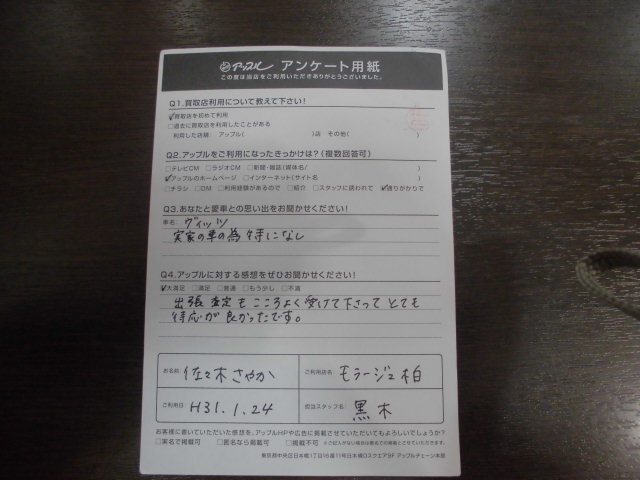 アップル アンケート用紙
この度は当店をご利用いただきありがとうございました。
Q1.買取店利用について教えて下さい!
☑買取店を初めて利用
□過去に買取店を利用したことがある
利用した店舗: アップル( )店 その他( )
Q2.アップルをご利用になったきっかけは?(複数回答可)
□テレビCM □ラジオCM □新聞・雑誌(媒体名/ )
☑アップルのホームページ □インターネット(サイト名 )
□チラシ □DM □利用経験があるので □紹介 □スタッフに誘われて ☑通りがかりで
Q3.あなたと愛車との思い出をお聞かせください!
車名: ヴィッツ
実家の車の為特になし
Q4.アップルに対する感想をぜひお聞かせください!
☑大満足 □満足 □普通 □もう少し □不満
出張査定もこころよく受けて下さってとても
対応が良かったです。
お名前: 佐々木さやか ご利用店名: モラージュ柏
ご利用日: H31.1.24 担当スタッフ名: 黒木
お客様に書いていただいた感想を、アップルHPや広告に掲載させていただいてもよろしいでしょうか?
□実名で掲載可 □匿名なら掲載可 □掲載不可 ※ご記入がない場合は匿名での掲載とさせていただきます。
東京都中央区日本橋1丁目16番11号日本橋Dスクエア9F アップルチェーン本部